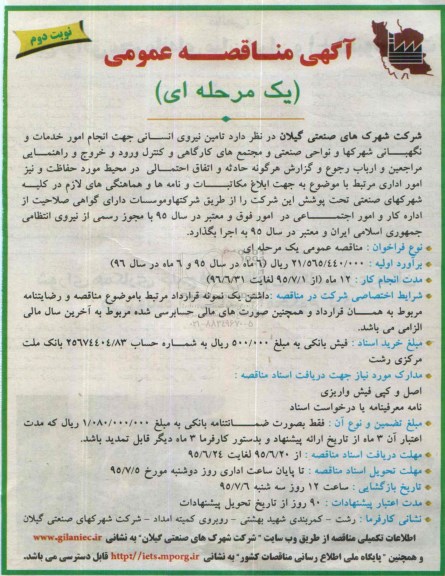 نوبت دوم
آگهی مناقصه عمومی
(یک مرحله ای)
شرکت شهرک های صنعتی گیلان در نظر دارد تامین نیروی انسانی جهت انجام امور خدمات و
نگهبانی شهرکها و نواحی صنعتی و مجتمع های کارگاهی و کنترل ورود و خروج و راهنمایی
مراجعین و ارباب رجوع و گزارش هرگونه حادثه و اتفاق احتمالی در محیط مورد حفاظت و نیز
امور اداری مرتبط با موضوع به جهت ابلاغ مکاتبات و نامه ها و هماهنگی های لازم در کلیه
شهرکهای صنعتی تحت پوشش این شرکت را از طریق شرکتهاوموسسات دارای گواهی صلاحیت از
اداره کار و امور اجتماعی در امور فوق و معتبر در سال ۹۵ با مجوز رسمی از نیروی انتظامی
جمهوری اسلامی ایران و معتبر در سال ۹۵ به اجرا بگذارد.
نوع فراخوان : مناقصه عمومی یک مرحله ای
برآورد اولیه : ۲۱/۵۶۵/۴۴۰/۰۰۰ ریال (۶ ماه در سال ۹۵ و ۶ ماه در سال ۹۶)
مدت انجام کار : ۱۲ ماه (از ۹۵/۷/۱ لغایت ۹۶/۶/۳۱)
شرایط اختصاصی شرکت در مناقصه :داشتن یک نمونه قرارداد مرتبط باموضوع مناقصه و رضایتنامه
مربوط به همان قرارداد و همچنین صورت های مالی حسابرسی شده مربوط به آخرین سال مالی
الزامی می باشد.
۰۲۱-۸۸۳۴۹۶۷۰-۵
مبلغ خرید اسناد : فیش بانکی به مبلغ ۵۰۰/۰۰۰ ریال به شماره حساب ۲۵۶۷۴۴۰۴/۸۳ بانک ملت
مرکزی رشت
مدارک مورد نیاز جهت دریافت اسناد مناقصه :
اصل و کپی فیش واریزی
نامه معرفینامه یا درخواست اسناد
مبلغ تضمین و نوع آن : فقط بصورت ضمانتنامه بانکی به مبلغ ۱/۰۸۰/۰۰۰/۰۰۰ ریال که مدت
اعتبار آن ۳ ماه از تاریخ ارائه پیشنهاد و بدستور کارفرما ۳ ماه دیگر قابل تمدید باشد.
مهلت دریافت اسناد مناقصه : از ۹۵/۶/۲۰ لغایت ۹۵/۶/۲۴
مهلت تحویل اسناد مناقصه : تا پایان ساعت اداری روز دوشنبه مورخ ۹۵/۷/۵
تاریخ بازگشایی : ساعت ۱۲ روز سه شنبه ۹۵/۷/۶
مدت اعتبار پیشنهادات : ۹۰ روز از تاریخ تحویل پیشنهادات
نشانی کارفرما : رشت - کمربندی شهید بهشتی - روبروی کمیته امداد - شرکت شهرکهای صنعتی گیلان
اطلاعات تکمیلی مناقصه از طریق وب سایت "شرکت شهرک های صنعتی گیلان" به نشانی www.gilaniec.ir
و همچنین "پایگاه ملی اطلاع رسانی مناقصات کشور" به نشانی http://iets.mporg.ir قابل دسترسی می باشد.